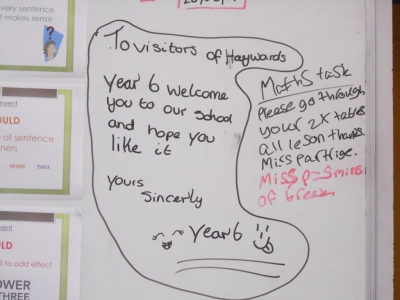 very sentence
t makes sense
To visitors of Haywards
Year 6 welcome
you to our school
and hope you
like it
yours
Sincerly
Year 6
Maths task
Please go through
your 2x tables
all leson thanks.
Miss partrige.
Miss p-5mins
of break
vent
OULD
r of sentence
ners
vent
OULD
to add effect
OWER
THREE